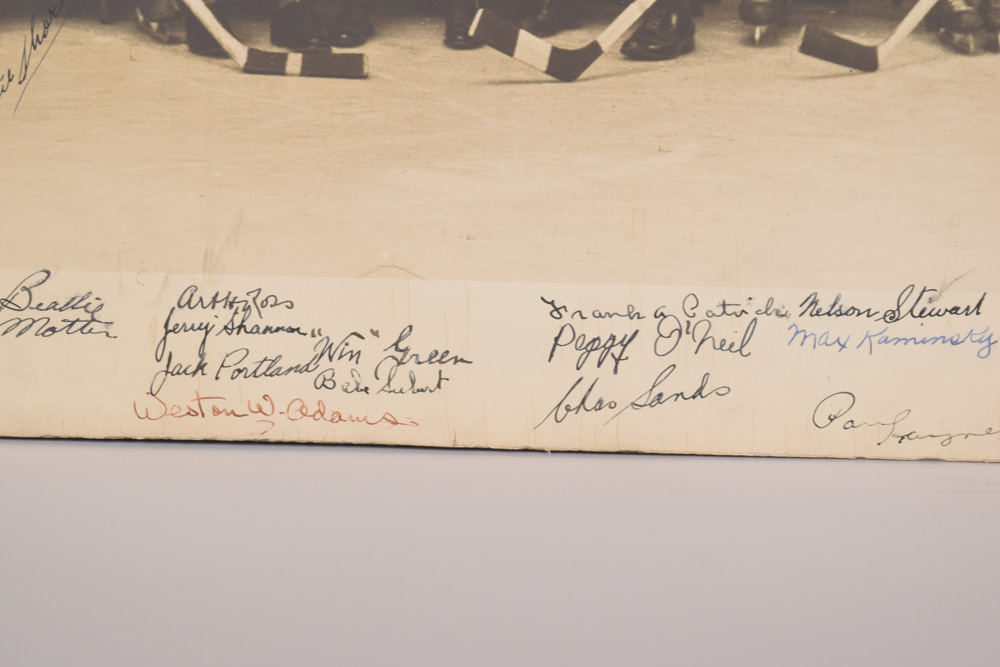 Shor
Beattie
Motter
Art H. Ross
Jerry Shannon
"Win" Green
Jack Portland
Babe Siebert
Weston W. Adams
Frank A Patrick
Nelson Stewart
Peggy O'Neil
Max Kaminsky
Chas Sands
Paul